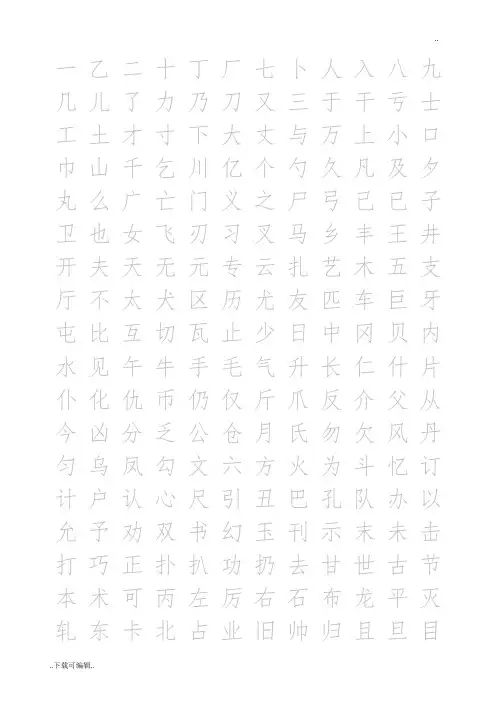 ..
一 乙 二 十 丁 厂 七 卜 人 入 八 九
几 儿 了 力 乃 刀 又 三 于 干 亏 士
工 土 才 寸 下 大 丈 与 万 上 小 口
巾 山 千 乞 川 亿 个 勺 久 凡 及 夕
丸 么 广 亡 门 义 之 尸 弓 己 已 子
卫 也 女 飞 刃 习 叉 马 乡 丰 王 井
开 夫 天 无 元 专 云 扎 艺 木 五 支
厅 不 太 犬 区 历 尤 友 匹 车 巨 牙
屯 比 互 切 瓦 止 少 日 中 冈 贝 内
水 见 午 牛 手 毛 气 升 长 仁 什 片
仆 化 仇 币 仍 仅 斤 爪 反 介 父 从
今 凶 分 乏 公 仓 月 氏 勿 欠 风 丹
匀 乌 凤 勾 文 六 方 火 为 斗 忆 订
计 户 认 心 尺 引 丑 巴 孔 队 办 以
允 予 劝 双 书 幻 玉 刊 示 末 未 击
打 巧 正 扑 扒 功 扔 去 甘 世 古 节
本 术 可 丙 左 厉 右 石 布 龙 平 灭
轧 东 卡 北 占 业 旧 帅 归 且 旦 目
..下载可编辑..